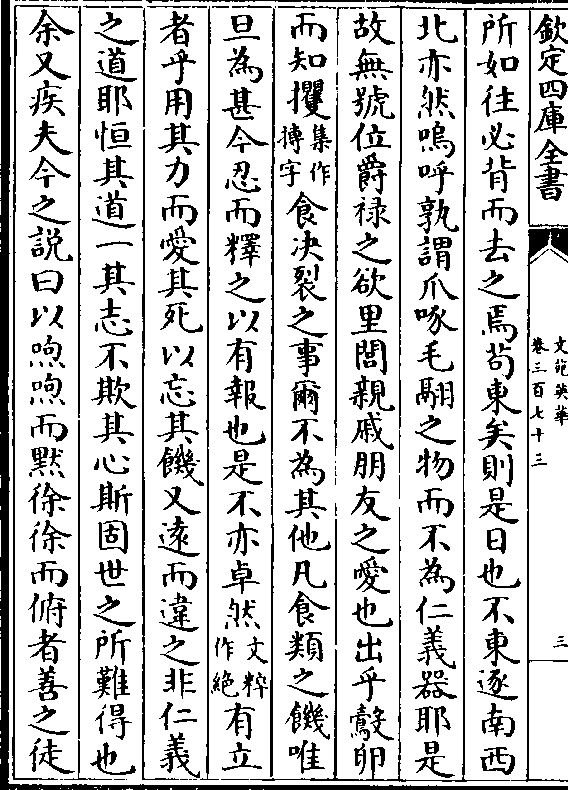 欽定四庫全書
文苑英華
卷三百七十三
三
所如往必背而去之焉苟東矣則是日也不東逐南西
北亦然嗚呼孰謂爪啄毛翮之物而不為仁義器耶是
故無號位爵祿之欲里閭親戚朋友之愛也出乎鷇卵
而知攫集作搏字食决裂之事爾不為其他凡食類之饑唯
旦為甚今忍而釋之以有報也是不亦卓然文粹作絶有立
者乎用其力而愛其死以忘其饑又遠而違之非仁義
之道耶恒其道一其志不欺其心斯固世之所難得也
余又疾夫今之說曰以喣喣而黙徐徐而俯者善之徒